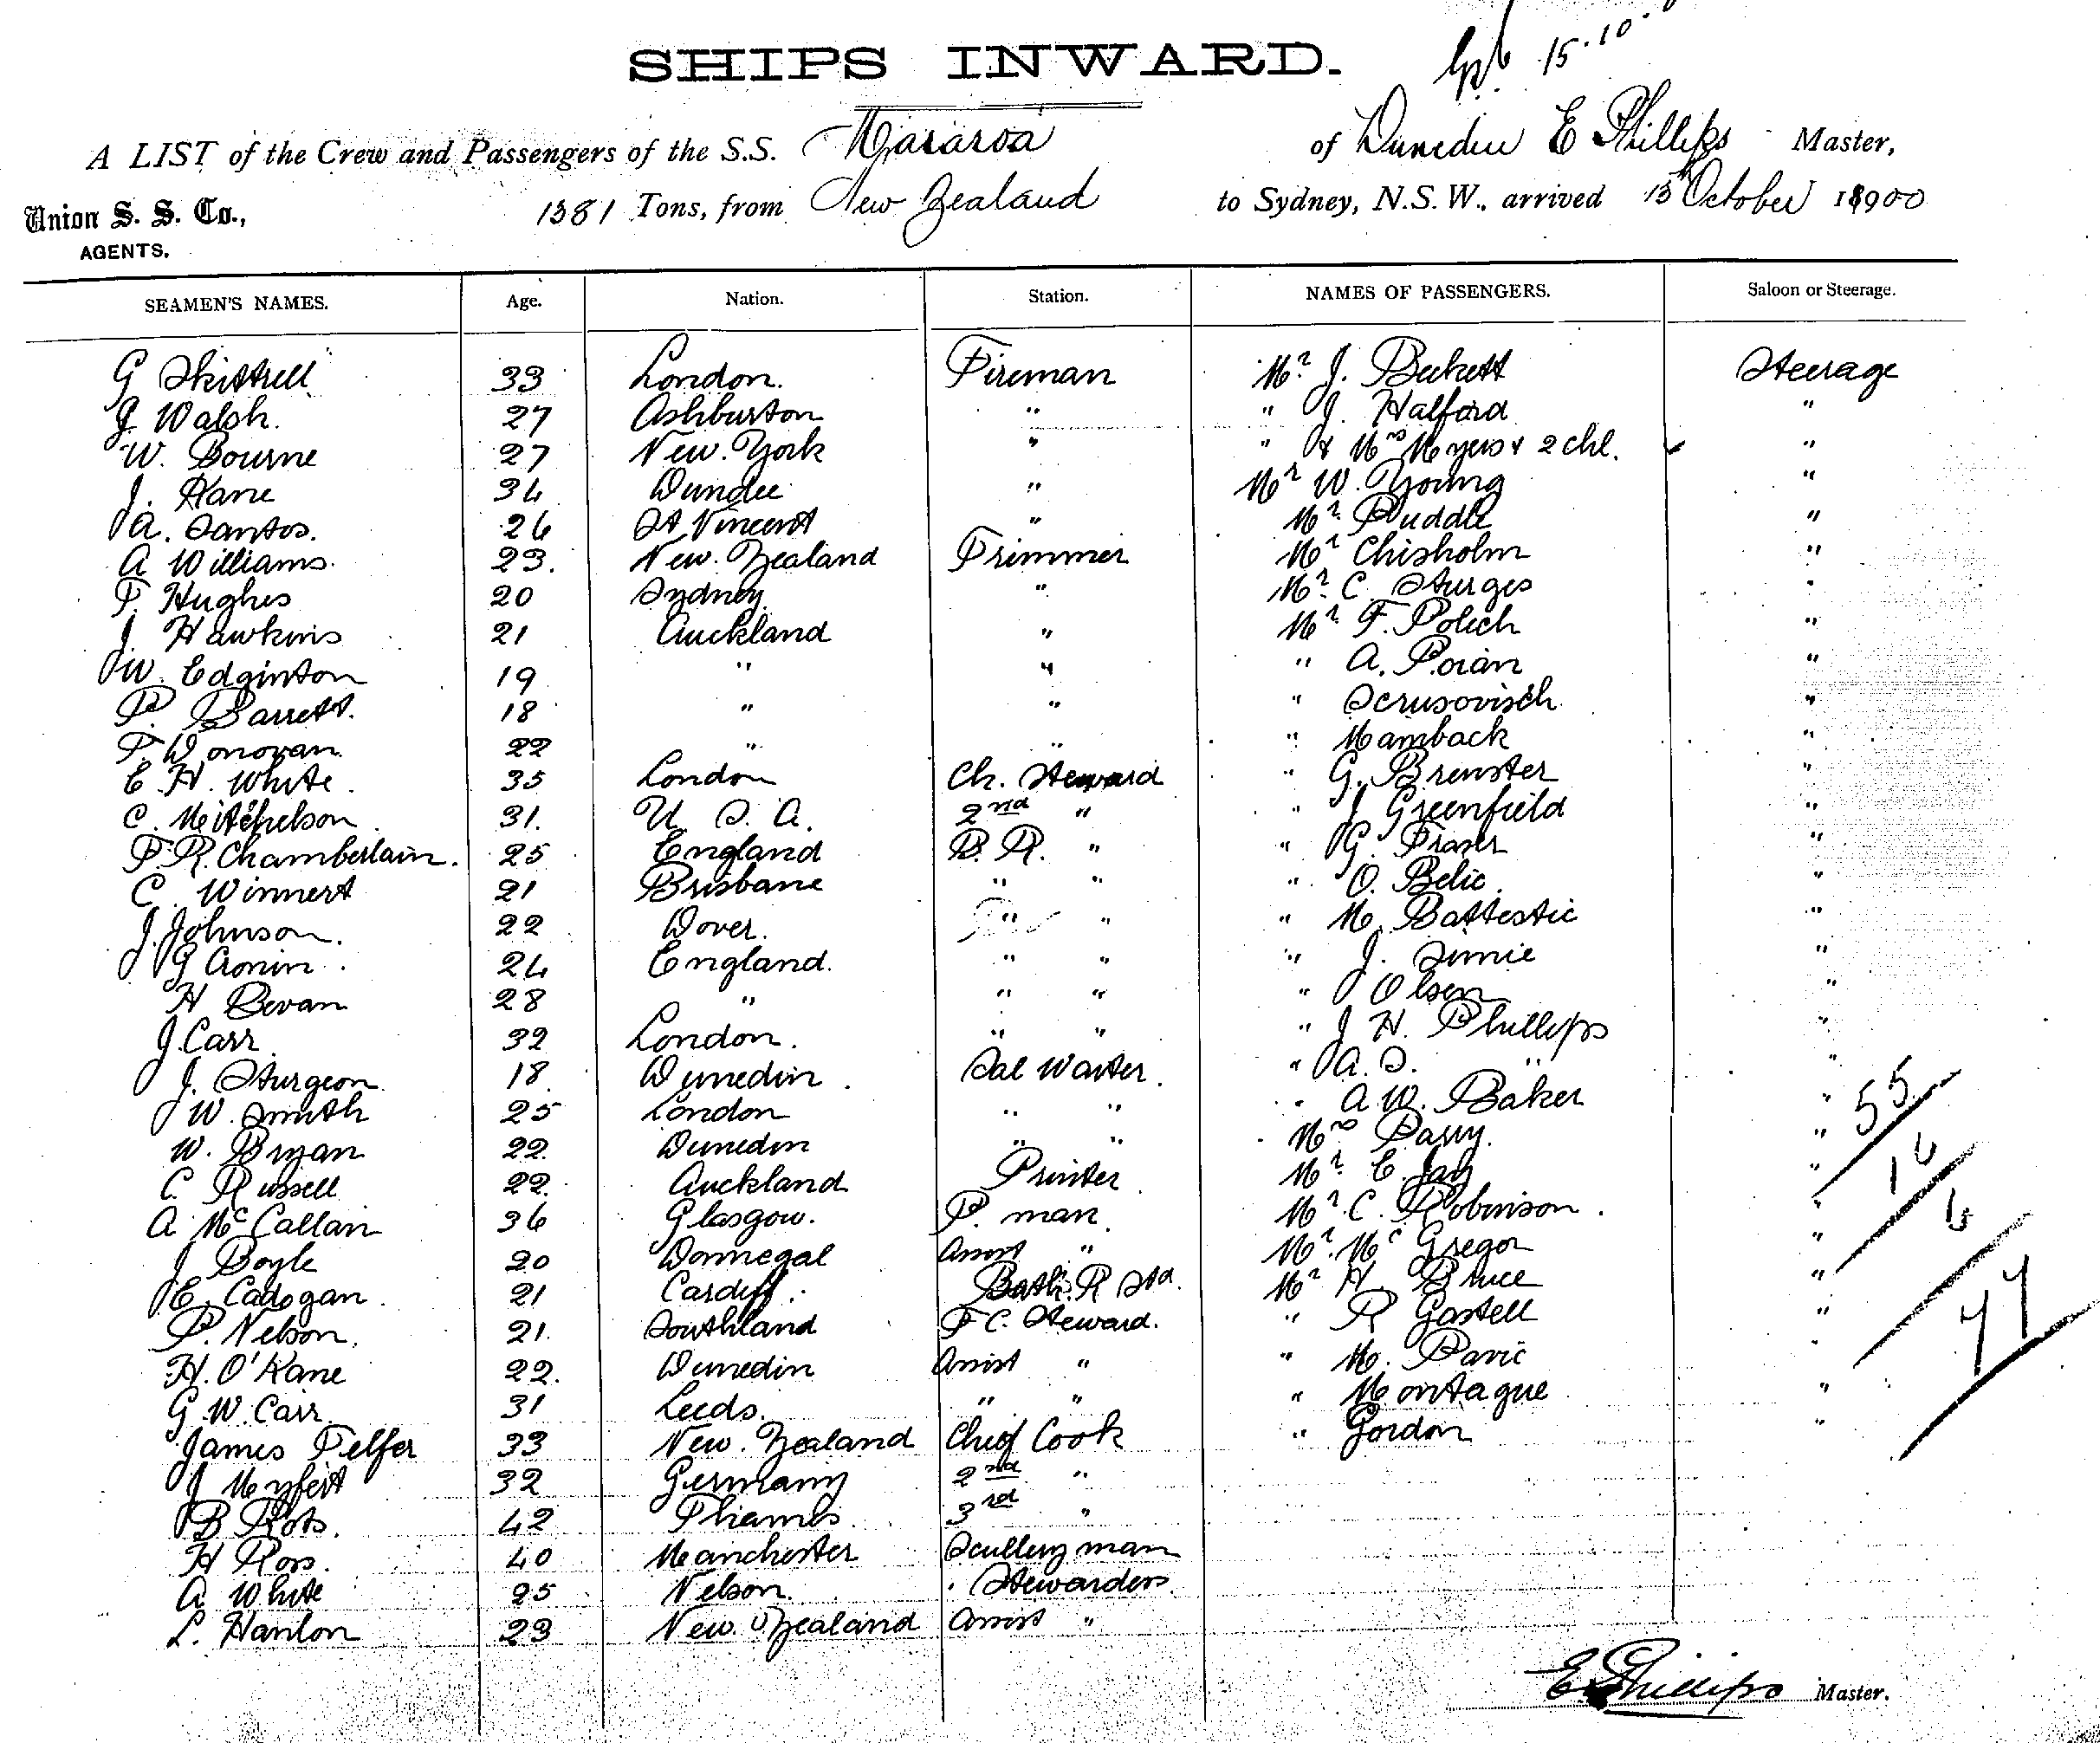 15.10.
SHIPS INWARD.
A LIST of the Crew and Passengers of the S.S. Mararoa of Dunedin E Phillips Master,
Union S. S. Co., AGENTS. 1381 Tons, from New Zealand to Sydney, N.S.W., arrived 15th October 1900
SEAMEN'S NAMES. Age. Nation. Station. NAMES OF PASSENGERS. Saloon or Steerage.
G Skittrell 33 London. Fireman Mr. J. Beckett Steerage
J. Walsh. 27 Ashburton " " J. Halford "
W. Bourne 27 New York " " & Mrs Meyers & 2 chl. "
J. Kane 34 Dundee " Mr W. Young "
A. Santos. 26 St Vincent " Mr. Puddle "
A Williams. 23. New Zealand Trimmer Mr Chisholm "
T. Hughes 20 Sydney. " Mr. C. Sturges "
J. Hawkins 21 Auckland " Mr. F. Polich "
W. Edginton 19 " " " A. Poian "
P. Barrett. 18 " " " Scrusovisch "
T. Donovan. 22 " " " Mamback "
E. H. White. 35 London Ch. Steward " G. Brewster "
C. Mitchelson 31. U. S. A. 2nd " " J Greenfield "
F. R. Chamberlain. 25 England B. R. " " G. Frazer "
C. Winnert 21 Brisbane " " " O. Belic. "
J. Johnson. 22 Dover. " " " M. Battestic "
G Cronin. 24 England. " " " J. Simie "
H Bevan 28 " " " " O Olsen "
J. Carr 32 London. " " " J H. Phillips "
J. Sturgeon. 18. Dunedin. Sal Waiter. " A. S. " "
W. Smith 25 London " " " A. W. Baker "
W. Bryan 22. Dunedin " " Mrs Parry. "
C. Russell 22. Auckland Printer. Mr. E Jay "
A McCallain 36 Glasgow. P. man. Mr. C. Robinson. "
J Boyle 20 Donnegal Assist " Mr. McGregor "
E. Cadogan. 21 Cardiff. Bath. R Std. Mr H. Bruce "
P. Nelson. 21. Southland F C. Steward. " R Gastell "
H. O'Kane 22. Dunedin Assist " " M. Pavic "
G. W. Carr 31 Leeds. " " " Montague "
James Telfer 33 New Zealand Chief Cook " Gordon "
J Meyfeit 32 Germany 2nd "
B Rots. 42 Thames 3rd "
H Ross. 40 Manchester Scullery man
A White 25 Nelson. Stewardess.
L. Hanlon 23 New Zealand Assist "
55
16
6
77
E Phillips Master.